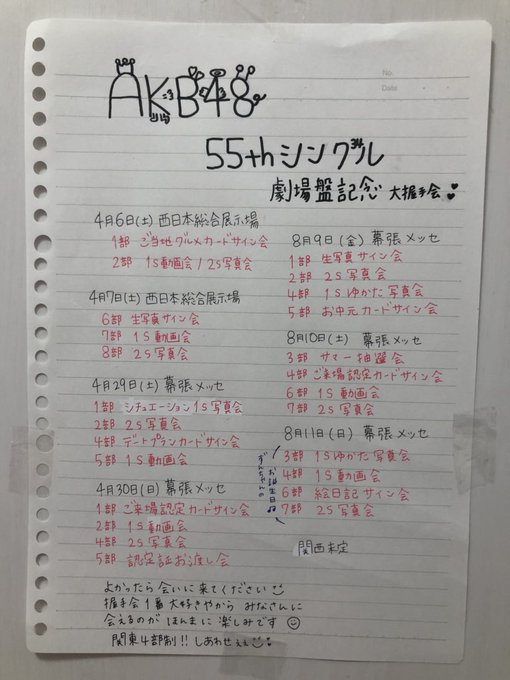 No.
Date
AKB48
55thシングル
劇場盤記念 大握手会
4月6日(土) 西日本総合展示場
1部 ご当地グルメカードサイン会
2部 1S動画会/2S写真会
4月7日(土) 西日本総合展示場
6部 生写真サイン会
7部 1S動画会
8部 2S写真会
4月29日(土) 幕張メッセ
1部 シチュエーション1S写真会
2部 2S写真会
4部 デートプランカードサイン会
5部 1S動画会
4月30日(日) 幕張メッセ
1部 ご来場認定カードサイン会
2部 1S動画会
4部 2S写真会
5部 認定証お渡し会
8月9日(金) 幕張メッセ
1部 生写真サイン会
2部 2S写真会
4部 1Sゆかた写真会
5部 お中元カードサイン会
8月10日(土) 幕張メッセ
3部 サマー抽選会
4部 ご来場認定カードサイン会
6部 1S動画会
7部 2S写真会
8月11日(日) 幕張メッセ
3部 1Sゆかた写真会
4部 1S動画会
6部 絵日記サイン会
7部 2S写真会
お誕生日
ずんちゃんの
関西未定
よかったら会いに来てください
握手会1番大好きやから みなさんに
会えるのが ほんまに楽しみです
関東4部制!! しあわせぇぇ